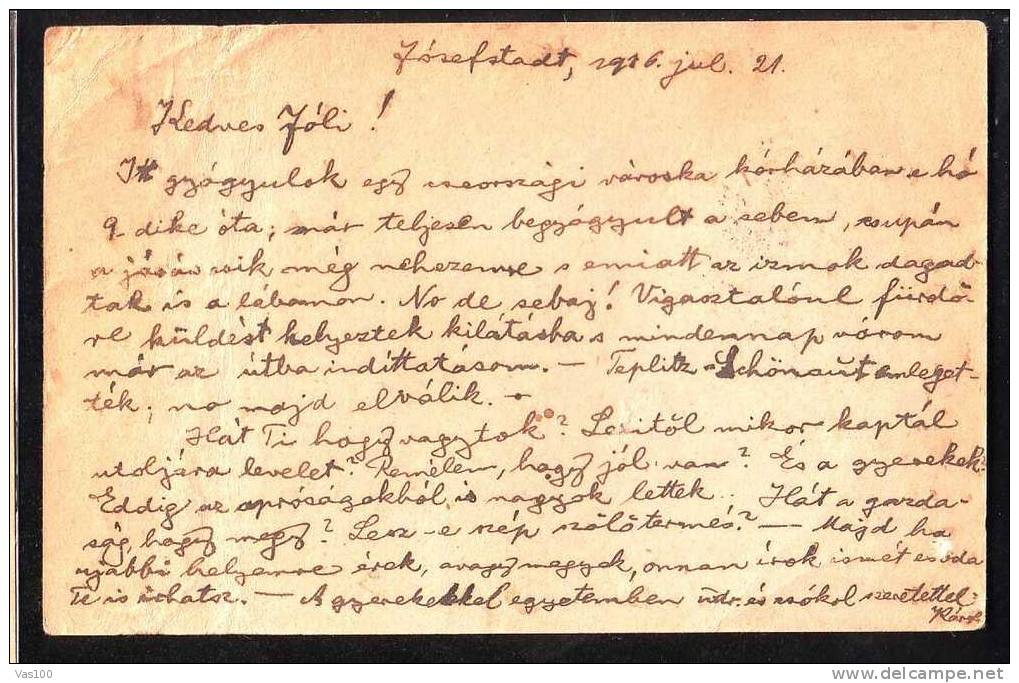 Jósefstadt, 1916. jul. 21.
Kedves Jóli!
Itt gyógyulok egy csországi városka kórházában e hó
9-dike óta; már teljesen begyógyult a sebem, csupán
a járás esik még nehezemre s emiatt az izmok dagad-
tak is a lábamon. No de sebaj! Vigasztalóul fürdő-
re küldést helyeztek kilátásba s mindennap várom
már az útba indíttatásom. – Teplitz-Schönaut emleget-
ték; no majd elválik. –
Hát Ti hogy vagytok? Lexitől mikor kaptál
utoljára levelet? Remélem, hogy jól van? És a gyerekek?
Eddig az apróságokból is nagyok lettek. Hát a gazda-
ság, hogy megy? Lesz-e szép szőlőtermés? – Majd ha
ujabbi helyemre érek, avagy megyek, onnan írok ismét es oda
Te is írhatsz. – A gyerekekkel egyetemben üdv. és csókol szeretettel:
Károly
Vas100
www.delcampe.net